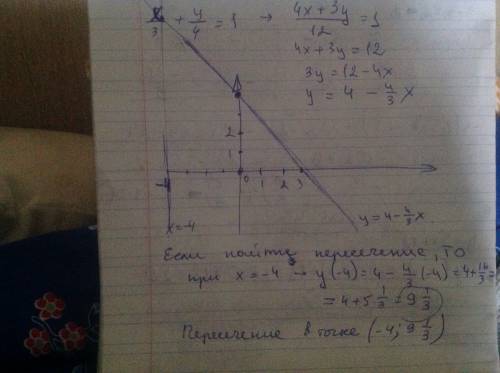 x/3 + y/4 = 1 → (4x+3y)/12 = 1
4x+3y=12
3y=12-4x
y = 4 - 4/3 x
2
1
-4 0 1 2 3
x=-4
y=4-4/3x
Если найти пересечение, то
при x=-4 → y(-4)=4-4/3(-4)=4+16/3=
=4+5 1/3=9 1/3
Пересечение в точке (-4; 9 1/3)